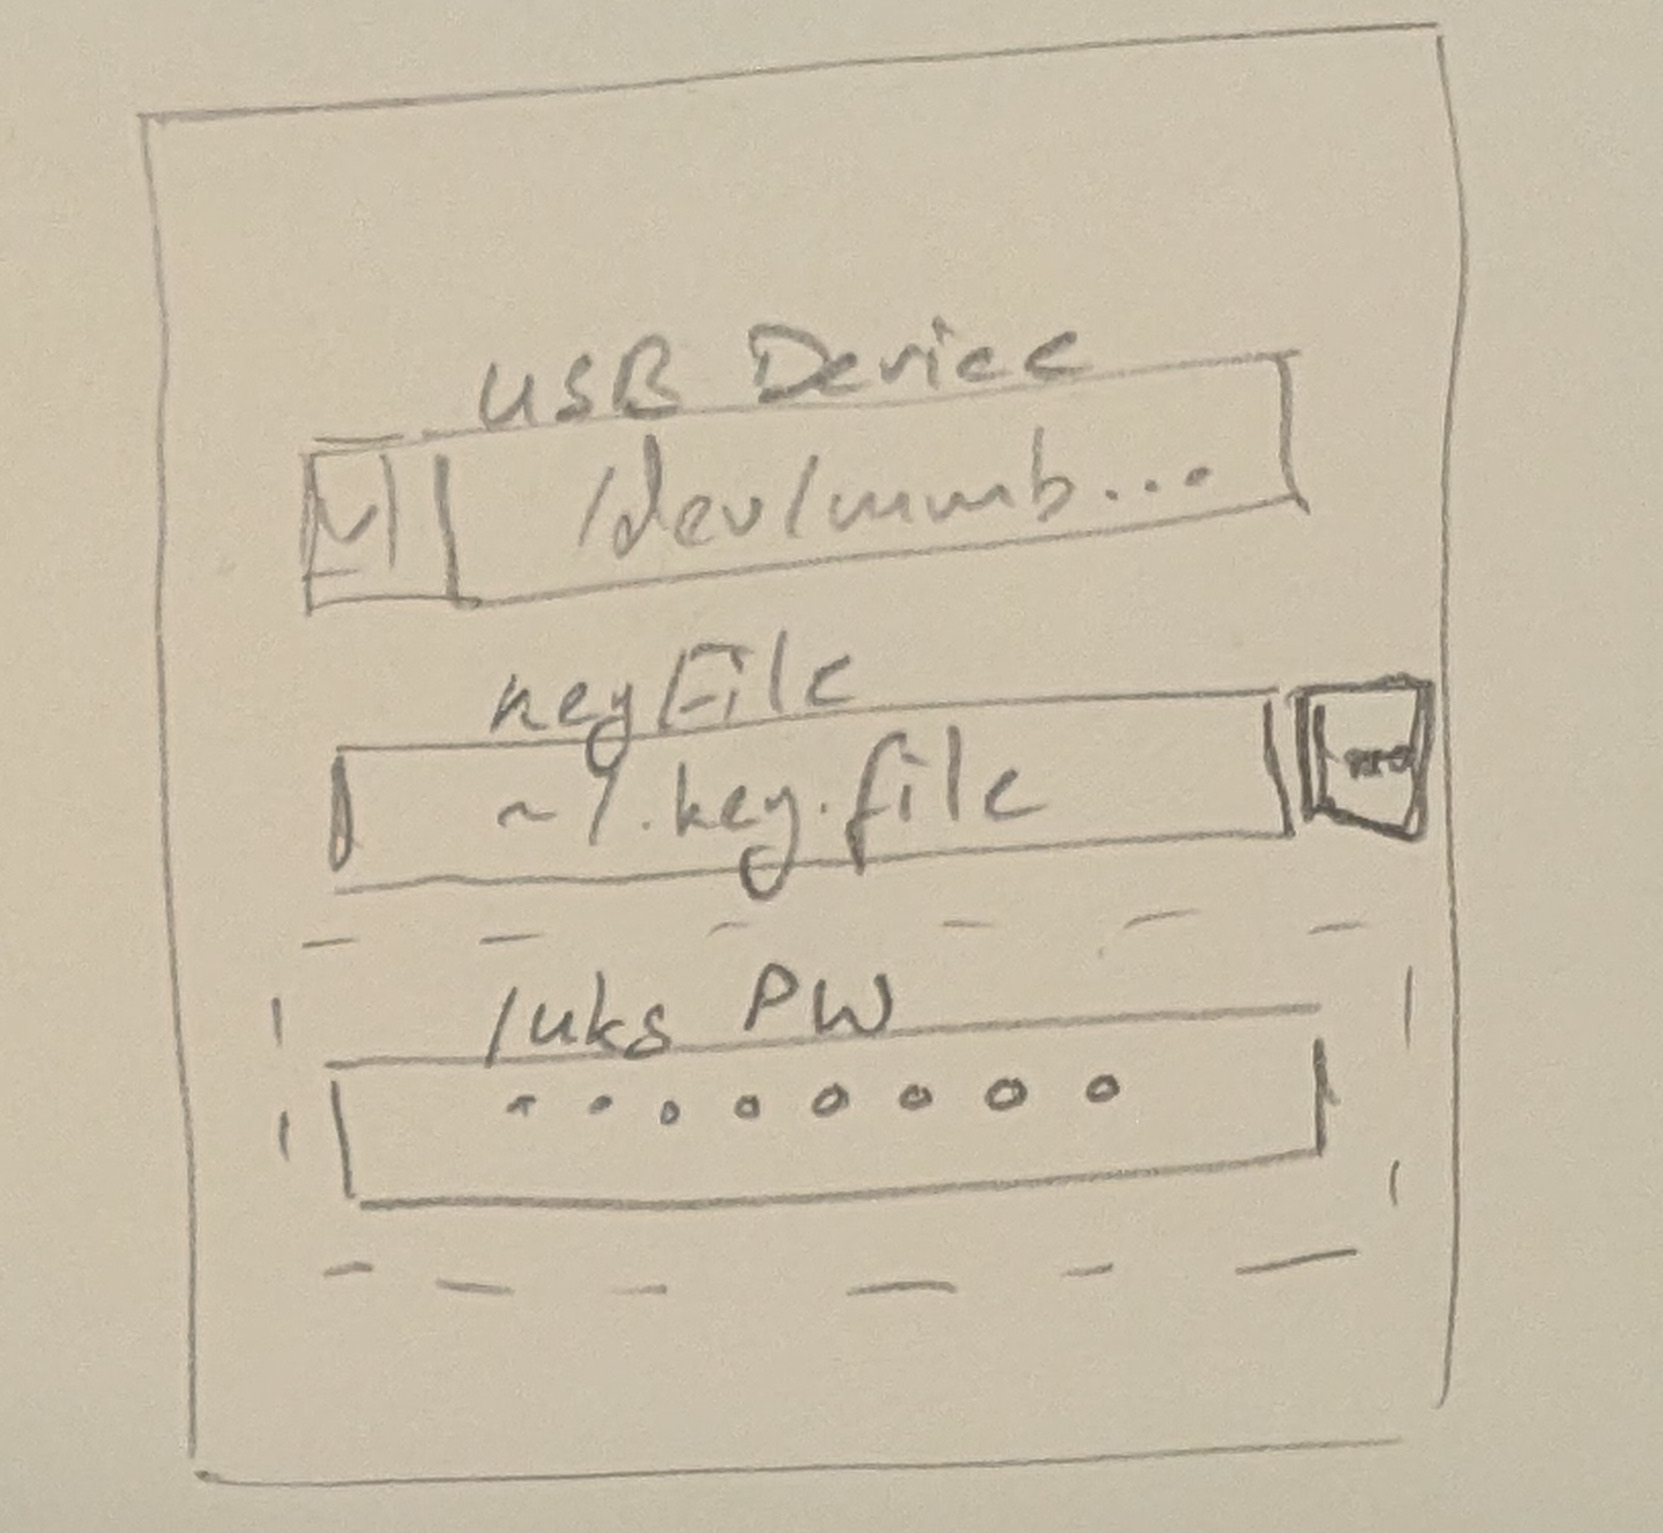 USB Device
/dev/mmb...
keyFile
~/.key.file
...
luks PW